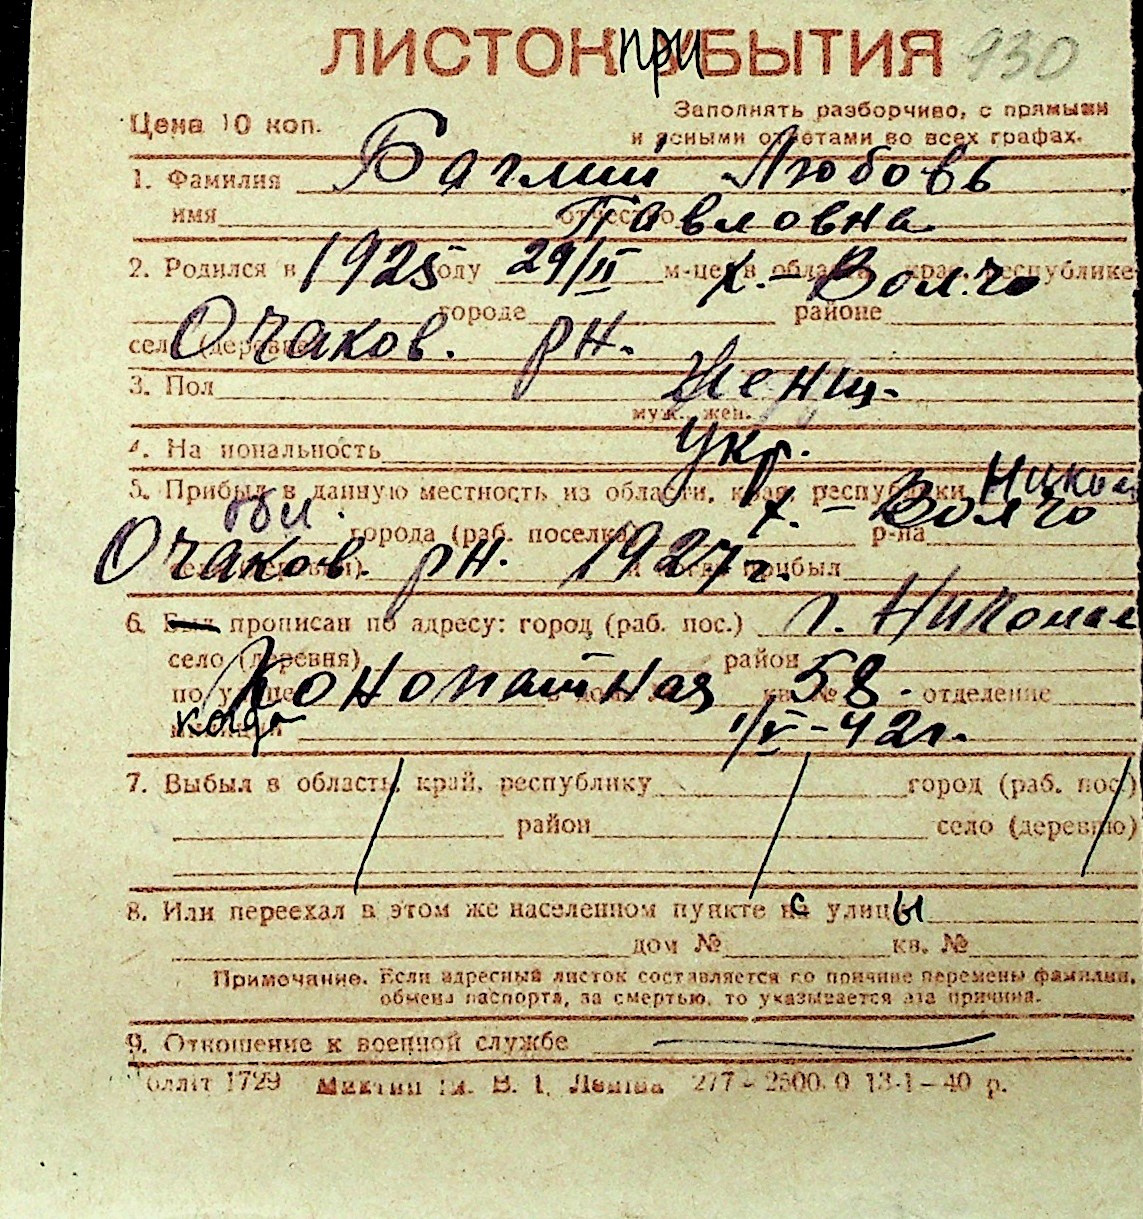 ЛИСТОК приБЫТИЯ 930
Цена 10 коп.
Заполнять разборчиво, с прямыми
и ясными ответами во всех графах.
1. Фамилия Баглий Любовь
имя отчество Павловна
2. Родился в 1925 году 29/II м-це, в области, края, республике х.-Волчо
городе районе
село (деревне) Очаков. рн.
3. Пол Женщ.
муж., жен.
4. Национальность Укр.
5. Прибыл в данную местность из области, края, республики Никол
обл. города (раб. поселка) х.-Волчо р-на
Очаков рн. 1927г. и когда прибыл
6. Был прописан по адресу: город (раб. пос.) г. Николае
село (деревня) район
по улице Конопатная кв. № 58. отделение
милиции когда 1/V-42г.
7. Выбыл в область, край, республику город (раб. пос.)
район село (деревню)
8. Или переехал в этом же населенном пункте с улицы
дом № кв. №
Примечание. Если адресный листок составляется по причине перемены фамилии,
обмена паспорта, за смертью, то указывается эта причина.
9. Отношение к военной службе
1729 Ленина 277-2500.0 13-1-40 р.